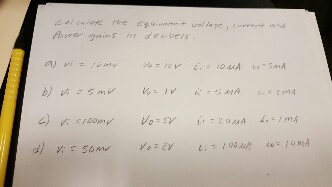 Calculate the equivalent voltage, current and
Power gains in decibels
a) Vi = 10mV Vo = 10V ii = 10 μA io = 5mA
b) Vi = 5 mV Vo = 1V ii = 5 μA io = 2mA
c) Vi = 100mV Vo = 5V ii = 20 μA io = 1mA
d) Vi = 50mV Vo = 2V ii = 100 μA io = 10mA